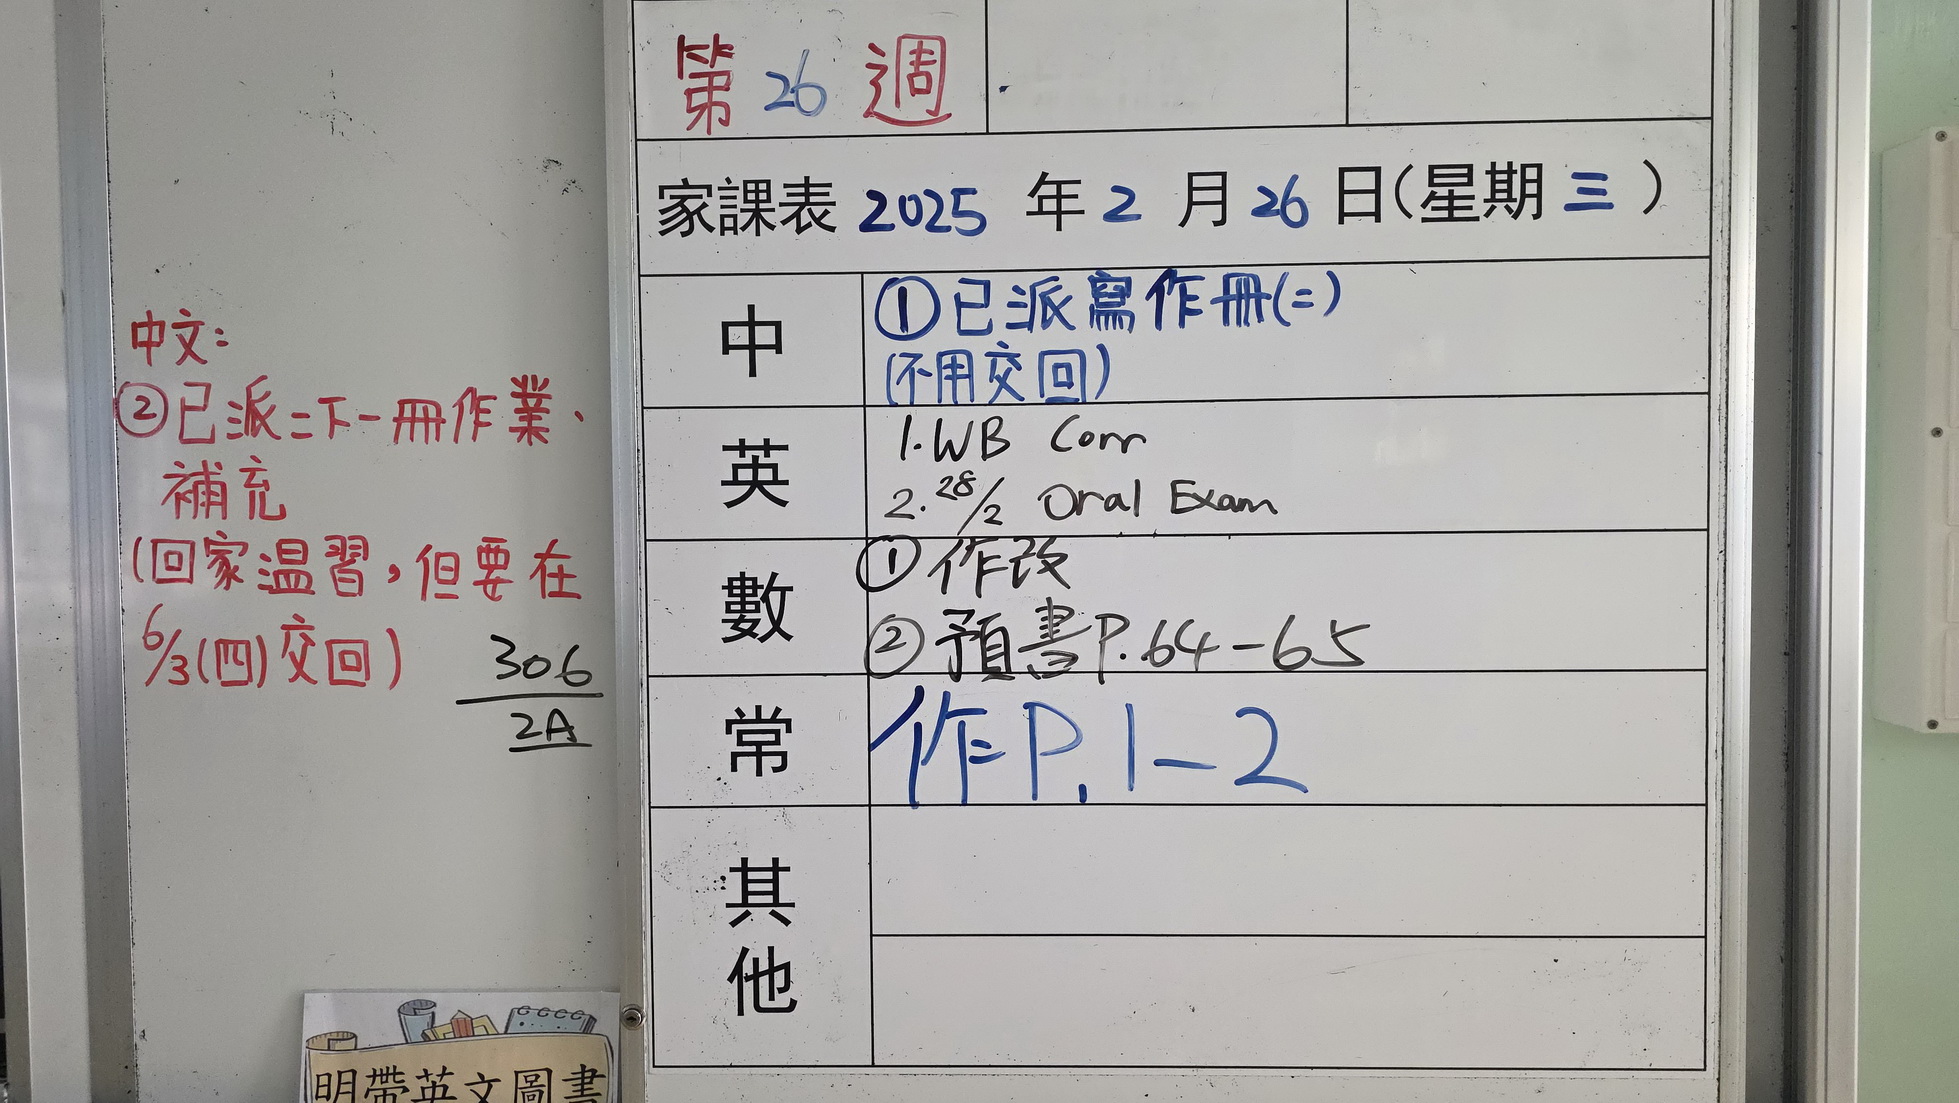 第26週
家課表 2025 年 2 月 26 日(星期 三 )
中
①已派寫作冊(二)
(不用交回)
英
1. WB Corr
2. 28/2 Oral Exam
數
①作改
②預書P.64-65
常
作P.1-2
其他
中文:
②已派二下一冊作業、
補充
(回家温習,但要在
6/3(四)交回)
306
2A
明帶英文圖書